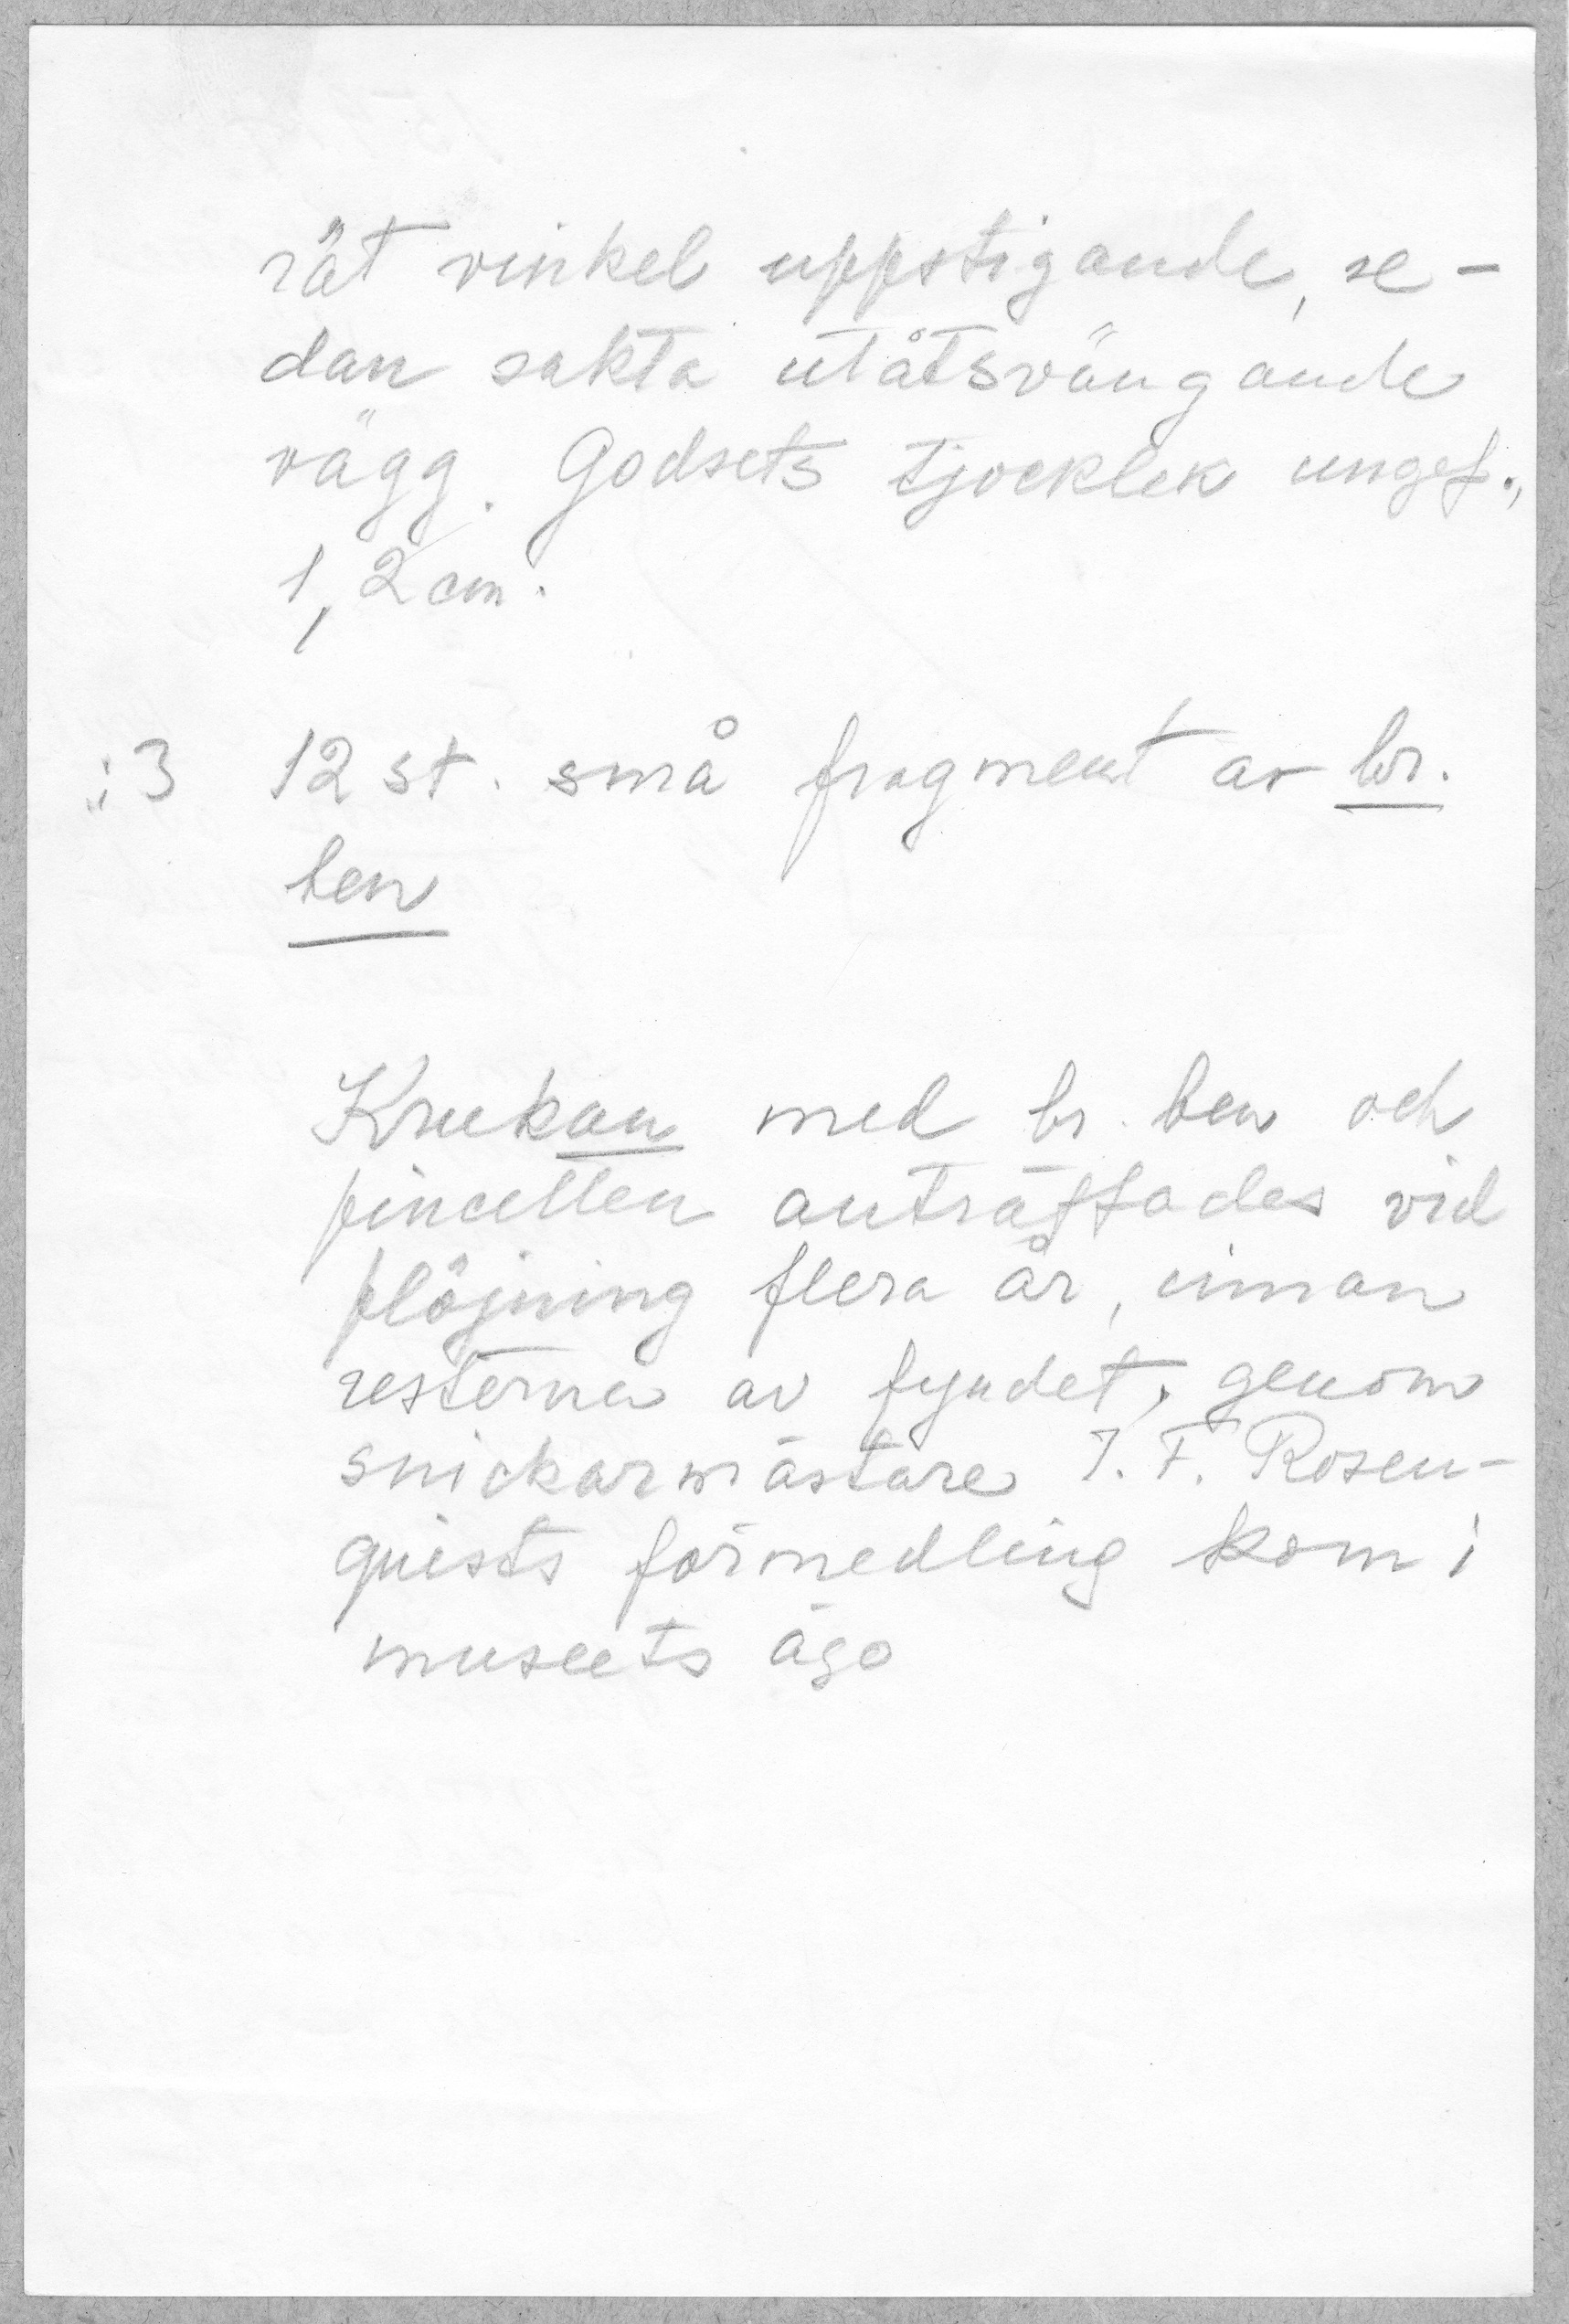 rät vinkel uppstigande, se-
dan sakta utåtsvängande
vägg. Godsets tjocklek ungef.,
1,2 cm.
:3 12 st. små fragment av br.
ben
Krukan med br. ben och
pincetten anträffades vid
plöjning flera år, innan
resterna av fyndet, genom
snickarmästare J. F. Rosen-
quists förmedling kom i
museets ägo